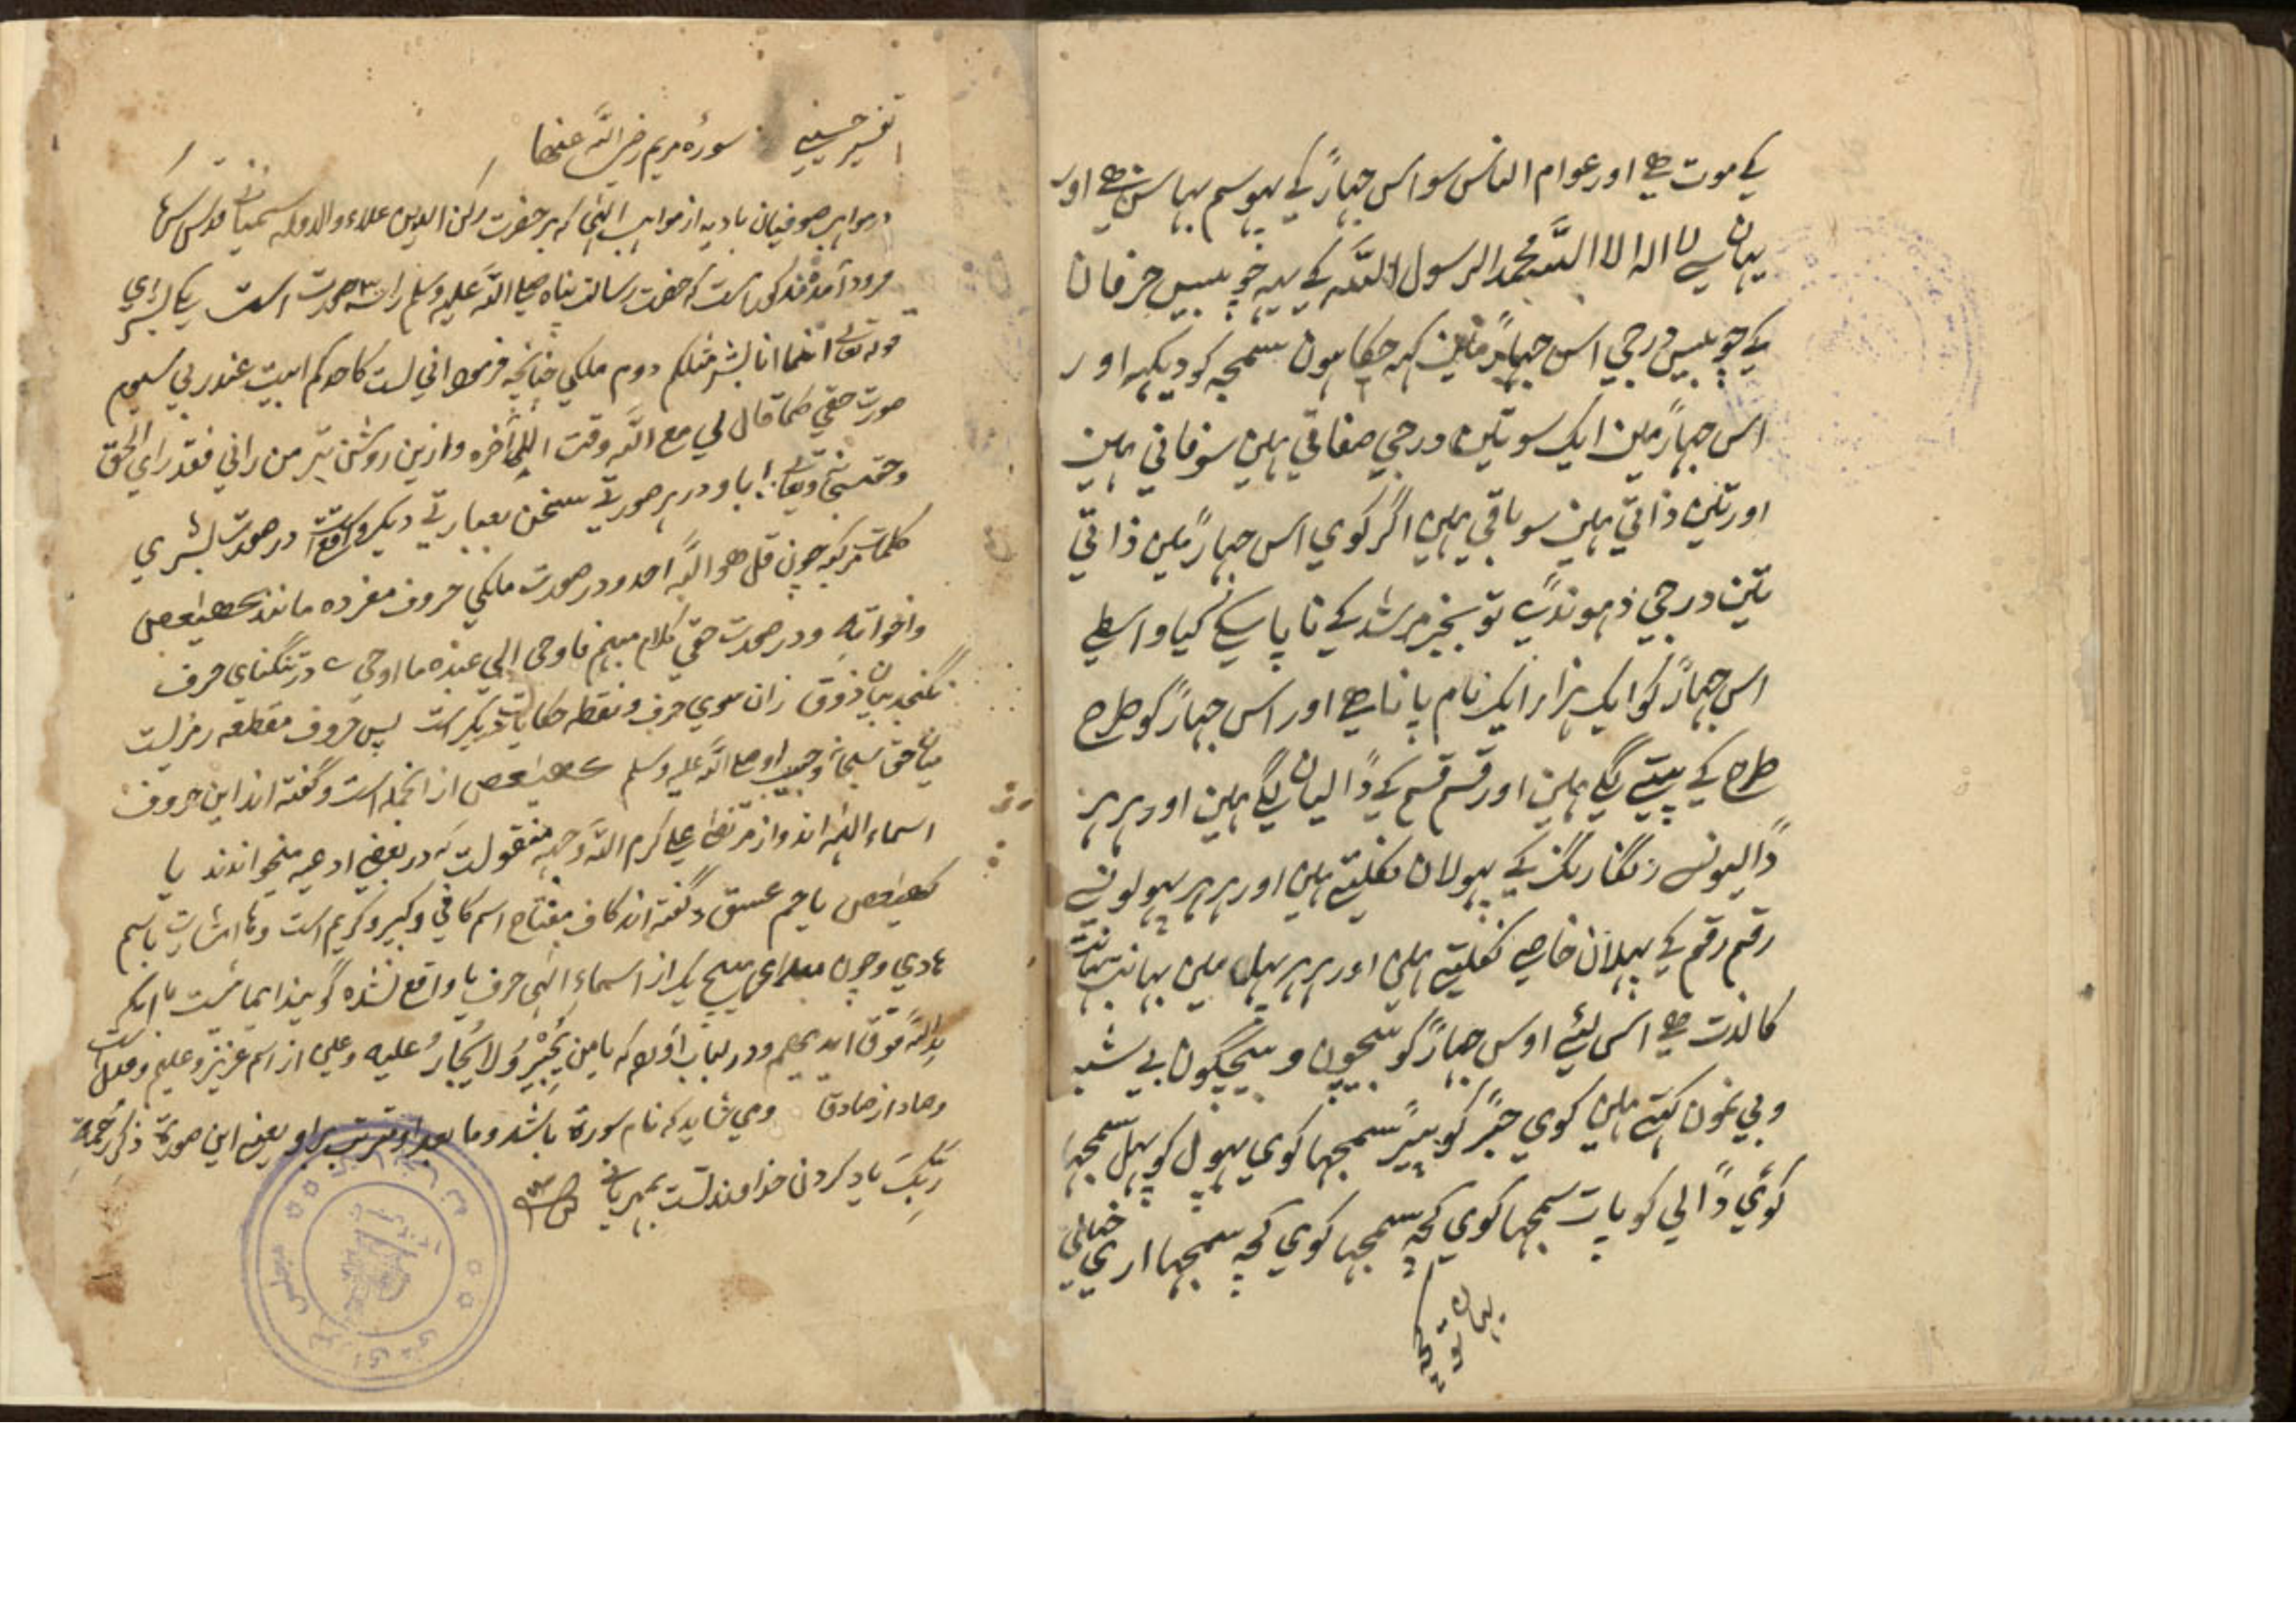 کے موت ہے اور عوام الناس سو اس جہاڑ کے
یہان سے لا اله الا الله محمد الرسول الله کے یہ چوبیس حرفان
کے چوبیس درجے اس جہاڑ مین کہہ چکا ہون سمجہ کو دیکہہ اور
اس جہاڑ مین ایک سو تین درجے صفاتی ہین سو فانی ہین
اور تین ذاتی ہین سو باقی ہین اگر کوی اس جہاڑ مین ذاتی
تین درجے ڈہونڈے تو بخیر مرشد کے نا پا سکے گیا واسطے
اس جہاڑ کو ایک ہزار ایک نام پانا ہے اور اس جہاڑ کو طرح
طرح کے پتے لگے ہین اور قسم قسم کے ڈالیان لگے ہین اور ہر ہر
ڈالیونسے رنگارنگ کے پہولان نکلتے ہین اور ہر ہر پہولونسے
رقم رقم کے پہلان خاصے نکلتے ہین اور ہر ہر پہل مین بہانت بہانت
کا لذت ہے اس لئے اوس جہاڑ کو بیچون و بیچگون بے شبہ
و بی نمون کہتے ہین کوی جڑ کو پیڑ سمجہا کوی پہول کو پہل سمجہا
کوئی ڈالی کو پات سمجہا کوی کچہ سمجہا کوی کچہ سمجہا اری
تفسیر حسینی سورہ مریم رضی الله عنها
در مواہب صوفیان بادیه از مواہب الہی که بر حضرت رکن الدین علاء والدوله سمنانی قدس سره
فرود آمده مذکور است که حضرت رسالت پناه صلی الله علیه وسلم را سه صورت است یکی بشری
قوله تعالی انما انا بشر مثلکم دوم ملکی چنانچه فرمود انی لست کاحدکم ابیت عند ربی سیوم
صورت حقی کما قال لی مع الله وقت الی آخره و ازین روشن تر من رانی فقد رای الحق
وحق سبحانه وتعالی با او در هر صورتی سخن بعبارتی دیگر واقع است در صورت بشری
کلمات مرکبه چون قل هو الله احد و در صورت ملکی حروف مفرده مانند کهیعص
واخواته و در صورت حقی کلام مبهم فاوحی الی عبده ما اوحی در تنگنای حرف
نگنجد بیان ذوق زان سوی حرف و نقطه حکایات دیگر است پس حروف مقطعه رمزیست
میان حق سبحانه و حبیب او صلی الله علیه وسلم کهیعص از انجمله است و گفته اند این حروف
اسماء الهیه اند و از مرتضی علی کرم الله وجهه منقولست که در بعضی ادعیه میخواندند یا
کهیعص یا حم عسق و گفته اند کاف مفتاح اسم کافی و کبیر و کریم است وها اشارت باسم
هادی و چون هیچ یک از اسماء الهی حرف یا واقع نشده گویند ایمائیست بانکه
یدالله فوق ایدیهم و در لباب آورده که یا من یجیر ولا یجار علیه وعین از اسم عزیز و علیم و عدل است
وصاد از صادق و می شاید که نام سوره باشد وما بعد او یعنی این سورة ذکر رحمة
ربک یاد کردن خداوند تست بمهربانی